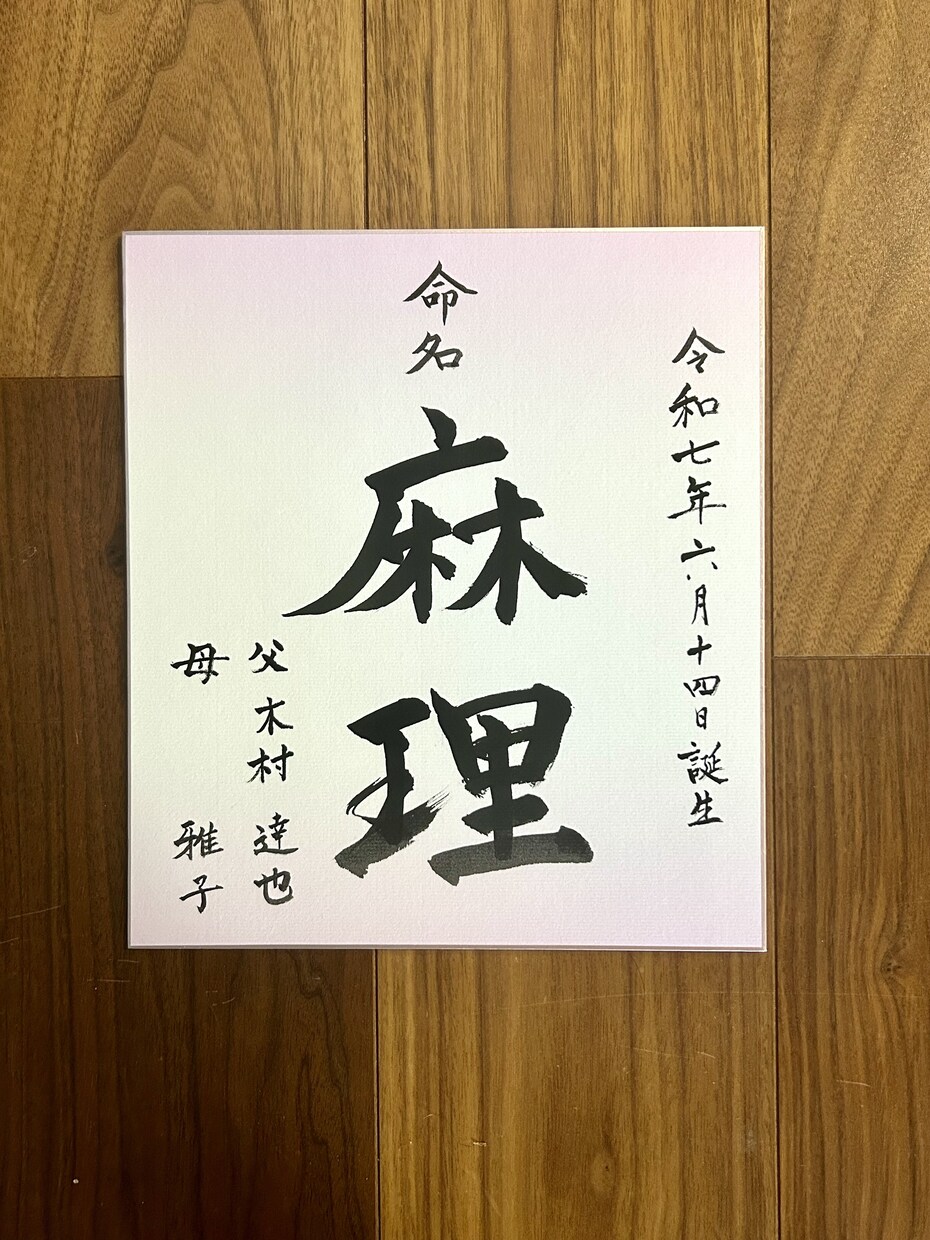 令和七年六月十四日誕生
命名
麻理
父 木村 達也
母 雅子